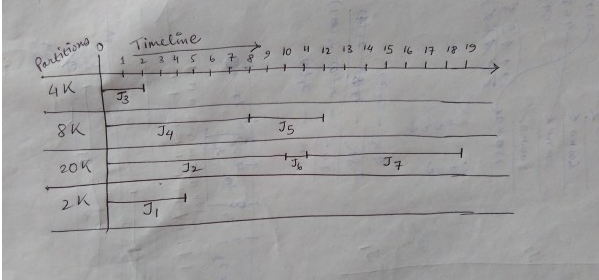 Partitions 0 Timeline
1 2 3 4 5 6 7 8 9 10 11 12 13 14 15 16 17 18 19
4K J3
8K J4 J5
20K J2 J6 J7
2K J1